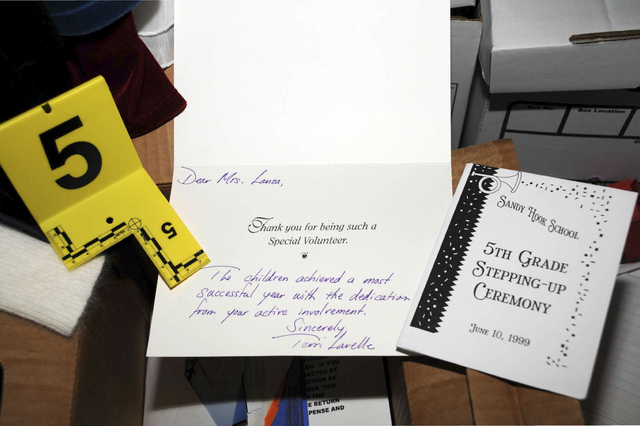 5
5
Dear Mrs. Lanza,
Thank you for being such a
Special Volunteer.
The children achieved a most
successful year with the dedication
from your active involvement.
Sincerely
Terri Lavelle
Box Location
SANDY HOOK SCHOOL
5TH GRADE
STEPPING-UP
CEREMONY
JUNE 10, 1999
THE RETURN
PENSE AND